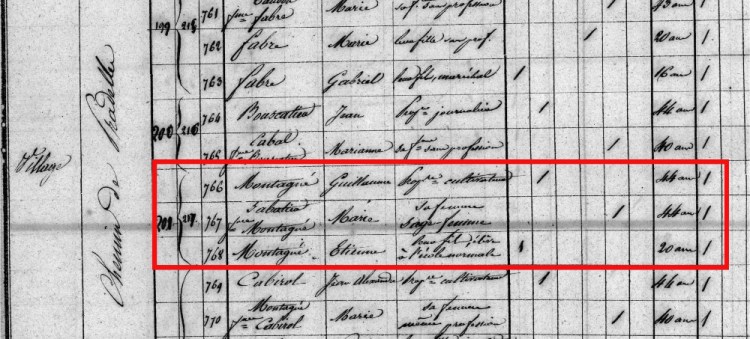 761 fme Fabre Marie sa fe sans profession 43 ans 1
199 215
762 Fabre Marie leur fille sans prof. 1 20 ans 1
763 Fabre Gabriel leur fils, maréchal 1 16 ans 1
764 Bouscatier Jean propre journalier 1 44 ans 1
200 216 Cabal
765 fme Marianne sa fme sans profession 1 40 ans 1
Village
Chemin de Pradelles
766 Montagné Guillaume propre cultivateur 1 44 ans 1
Sabatier sa femme
201 217 767 fme Montagné Marie sage-femme 1 44 ans 1
leur fils, élève
768 Montagné Etienne à l'école normale 1 20 ans 1
769 Cabirol Jean propre cultivateur 1 44 ans 1
Montagné sa femme
770 fme Cabirol Marie même profession 1 40 ans 1